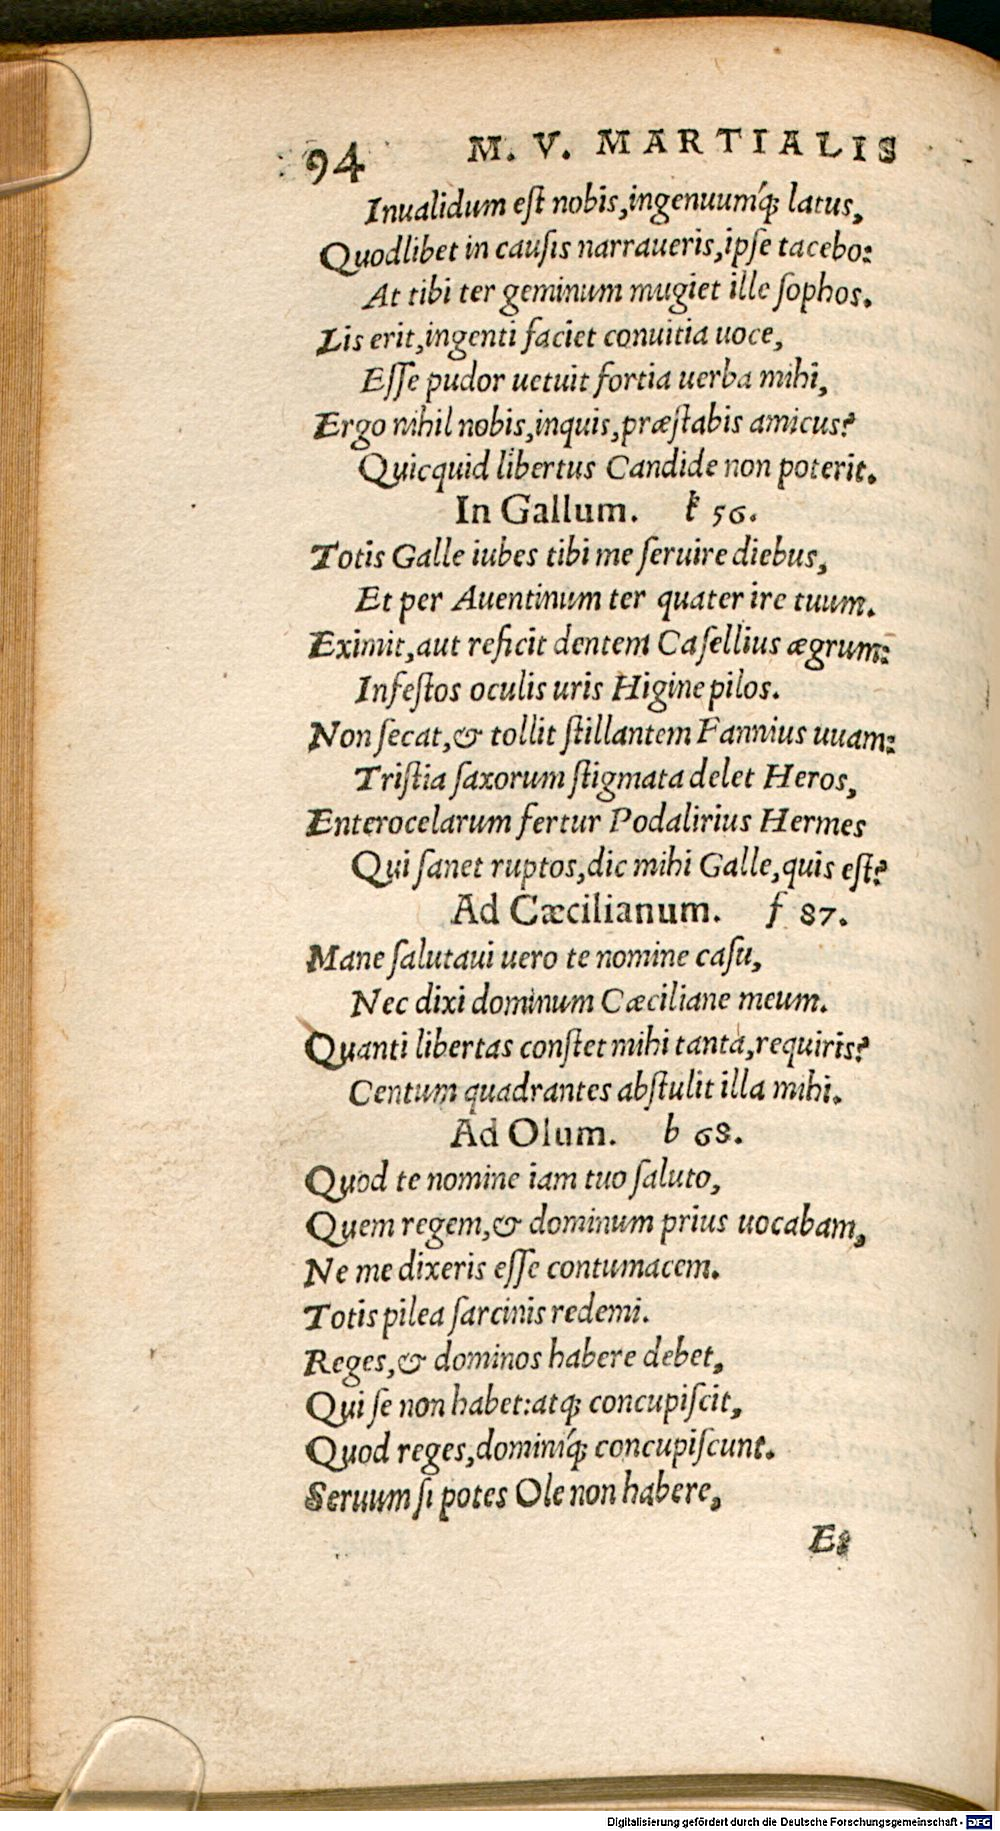 94 M. V. MARTIALIS
Inualidum eſt nobis,ingenuumq́; latus,
Quodlibet in cauſis narraueris,ipſe tacebo:
At tibi ter geminum mugiet ille ſophos.
Lis erit,ingenti faciet conuitia uoce,
Eſſe pudor uetuit fortia uerba mihi,
Ergo nihil nobis,inquis,præſtabis amicus?
Quicquid libertus Candide non poterit.
In Gallum. k 56.
Totis Galle iubes tibi me ſeruire diebus,
Et per Auentinum ter quater ire tuum.
Eximit,aut reficit dentem Caſellius ægrum:
Infeſtos oculis uris Higine pilos.
Non ſecat,& tollit ſtillantem Fannius uuam:
Triſtia ſaxorum ſtigmata delet Heros,
Enterocelarum fertur Podalirius Hermes
Qui ſanet ruptos,dic mihi Galle,quis eſt?
Ad Cæcilianum. f 87.
Mane ſalutaui uero te nomine caſu,
Nec dixi dominum Cæciliane meum.
Quanti libertas conſtet mihi tanta,requiris?
Centum quadrantes abſtulit illa mihi.
Ad Olum. b 68.
Quod te nomine iam tuo ſaluto,
Quem regem,& dominum prius uocabam,
Ne me dixeris eſſe contumacem.
Totis pilea ſarcinis redemi.
Reges,& dominos habere debet,
Qui ſe non habet:atq; concupiſcit,
Quod reges,dominiq́; concupiſcunt.
Seruum ſi potes Ole non habere,
Et
Digitalisierung gefördert durch die Deutsche Forschungsgemeinschaft - DFG